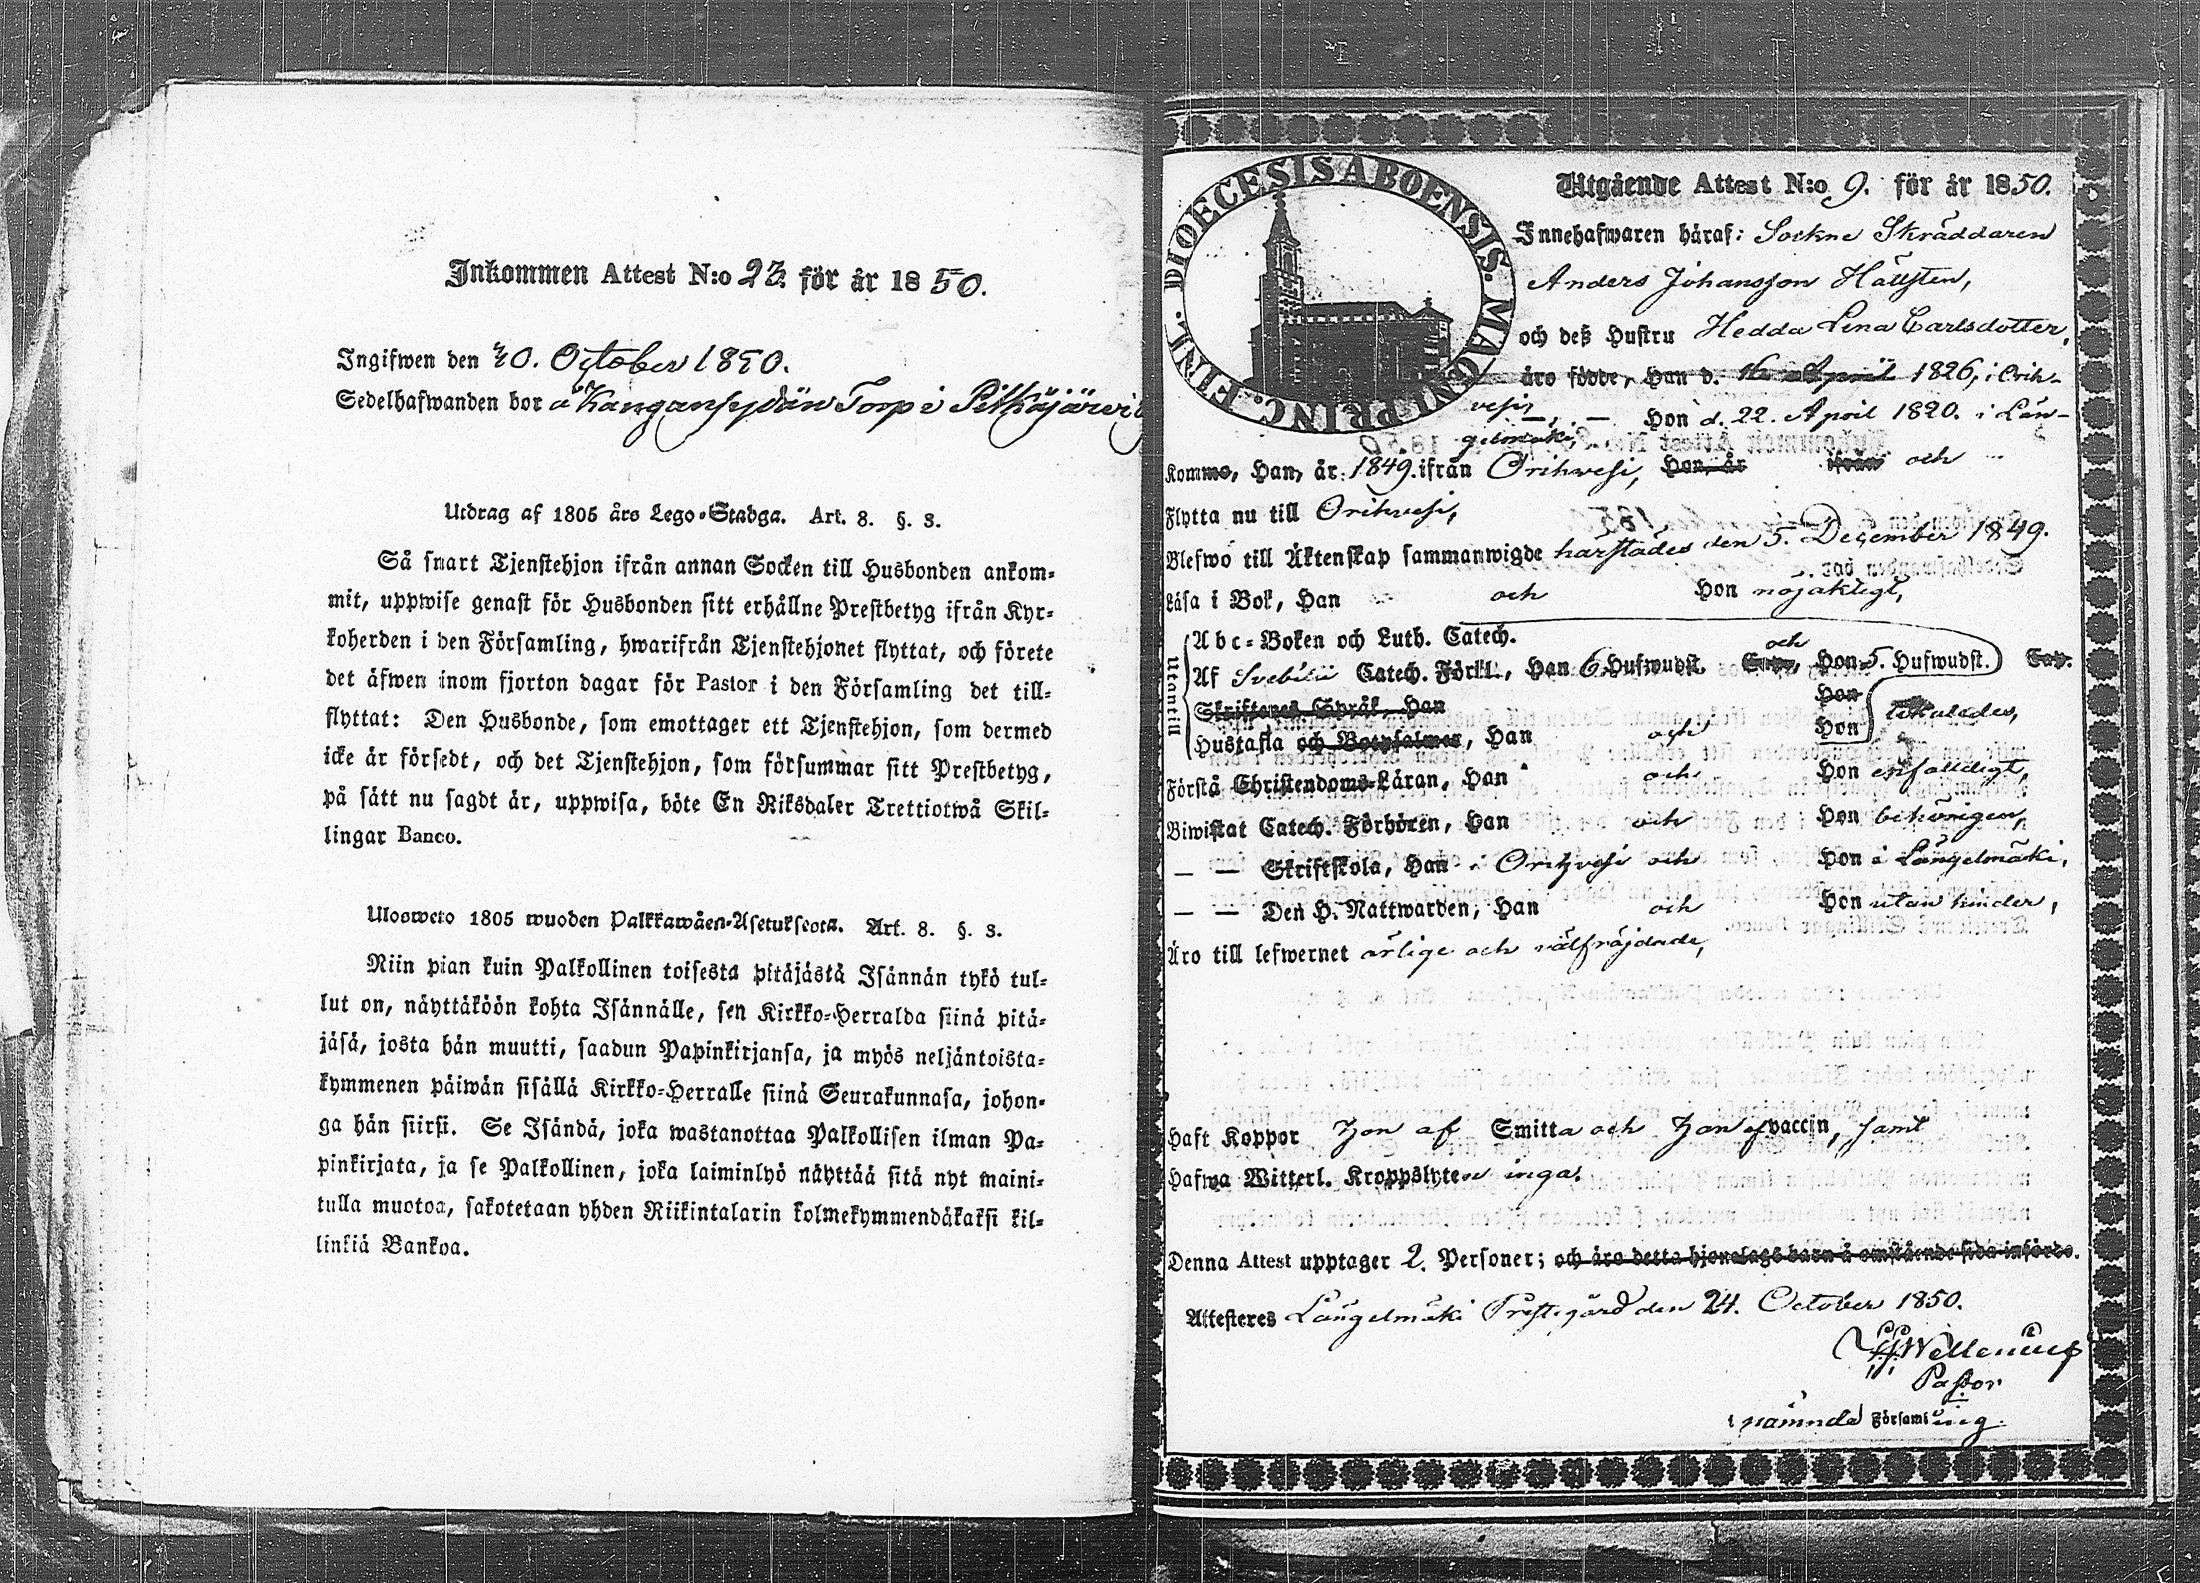 Inkommen Attest N:o 23 för år 1850.
Ingifwen den October 1850.
Sedelhafwanden bor å Torp i Pitkäjärwi
Utdrag af 1805 års Lego-Stadga. Art. 8. §. 3.
Så snart Tjenstehjon ifrån annan Socken till Husbonden ankom-
mit, uppwise genast för Husbonden sitt erhållne Prestbetyg ifrån Kyr-
koherden i den Församling, hwarifrån Tjenstehjonet flyttat, och förete
det äfwen inom fjorton dagar för Pastor i den Församling det till-
flyttat: Den Husbonde, som emottager ett Tjenstehjon, som dermed
icke är försedt, och det Tjenstehjon, som försummar sitt Prestbetyg,
på sätt nu sagdt är, uppwisa, böte En Riksdaler Trettiotwå Skil-
lingar Banco.
Ulosweto 1805 wuoden Palkkawäen-Asetuksesta. Art. 8. §. 3.
Niin pian kuin Palkollinen toisesta pitäjästä Isännän tykö tul-
lut on, näyttäköön kohta Isännälle, sen Kirkko-Herralda siinä pitä-
jäsä, josta hän muutti, saadun Papinkirjansa, ja myös neljäntoista-
kymmenen päiwän sisällä Kirkko-Herralle siinä Seurakunnasa, johon-
ga hän siirsi. Se Isändä, joka wastanottaa Palkollisen ilman Pa-
pinkirjata, ja se Palkollinen, joka laiminlyö näyttää sitä nyt maini-
tulla muotoa, sakotetaan yhden Riikintalarin kolmekymmendäkaksi kil-
linkiä Bankoa.
DIOECESIS ABOENSIS. MAGNI PRINC. FINL.
Utgående Attest N:o 9. för år 1850.
Innehafwaren häraf: Sockne Skräddaren
Anders Johansson Hällsten,
och deß Hustru Hedda Lena Carlsdotter,
äro födde, Han d. 16 April 1826, i Orih-
vesi, — Hon d. 22. April 1820. i Län-
gelmäki,
Komme, Han, år 1849. ifrån Orihvesi, Hon, år ifrån och
Flytta nu till Orihvesi,
Blefwo till Äktenskap sammanwigde härstädes den 5. December 1849.
Läsa i Bok, Han och Hon nöjaktigt,
Utantill
Abc-Boken och Luth. Catech.
Af Svebilii Catech. Förkl., Han 6. Hufwudst. och Hon 5. Hufwudst. Cap.
Skriftenes Språk, Han Hon
Hustafla och Botpsalmer, Han och Hon likaledes,
Förstå Christendoms-Läran, Han och Hon enfalldigt,
Biwistat Catech. Förhören, Han och Hon behörigen,
— — Skriftskola, Han i Orihvesi och Hon i Längelmäki,
— — Den H. Nattwarden, Han och Hon utan hinder,
Äro till lefwernet ärlige och välfräjdade,
Haft Koppor Han af Smitta och Hon af vaccin, samt
Hafwa Witterl. Kroppslyten inga.
Denna Attest upptager 2. Personer; och äro detta hjonelags barn å omstående sida införde.
Attesteres Längelmäki Prestegård den 24. October 1850.
Pastor
i nämnda Församling.